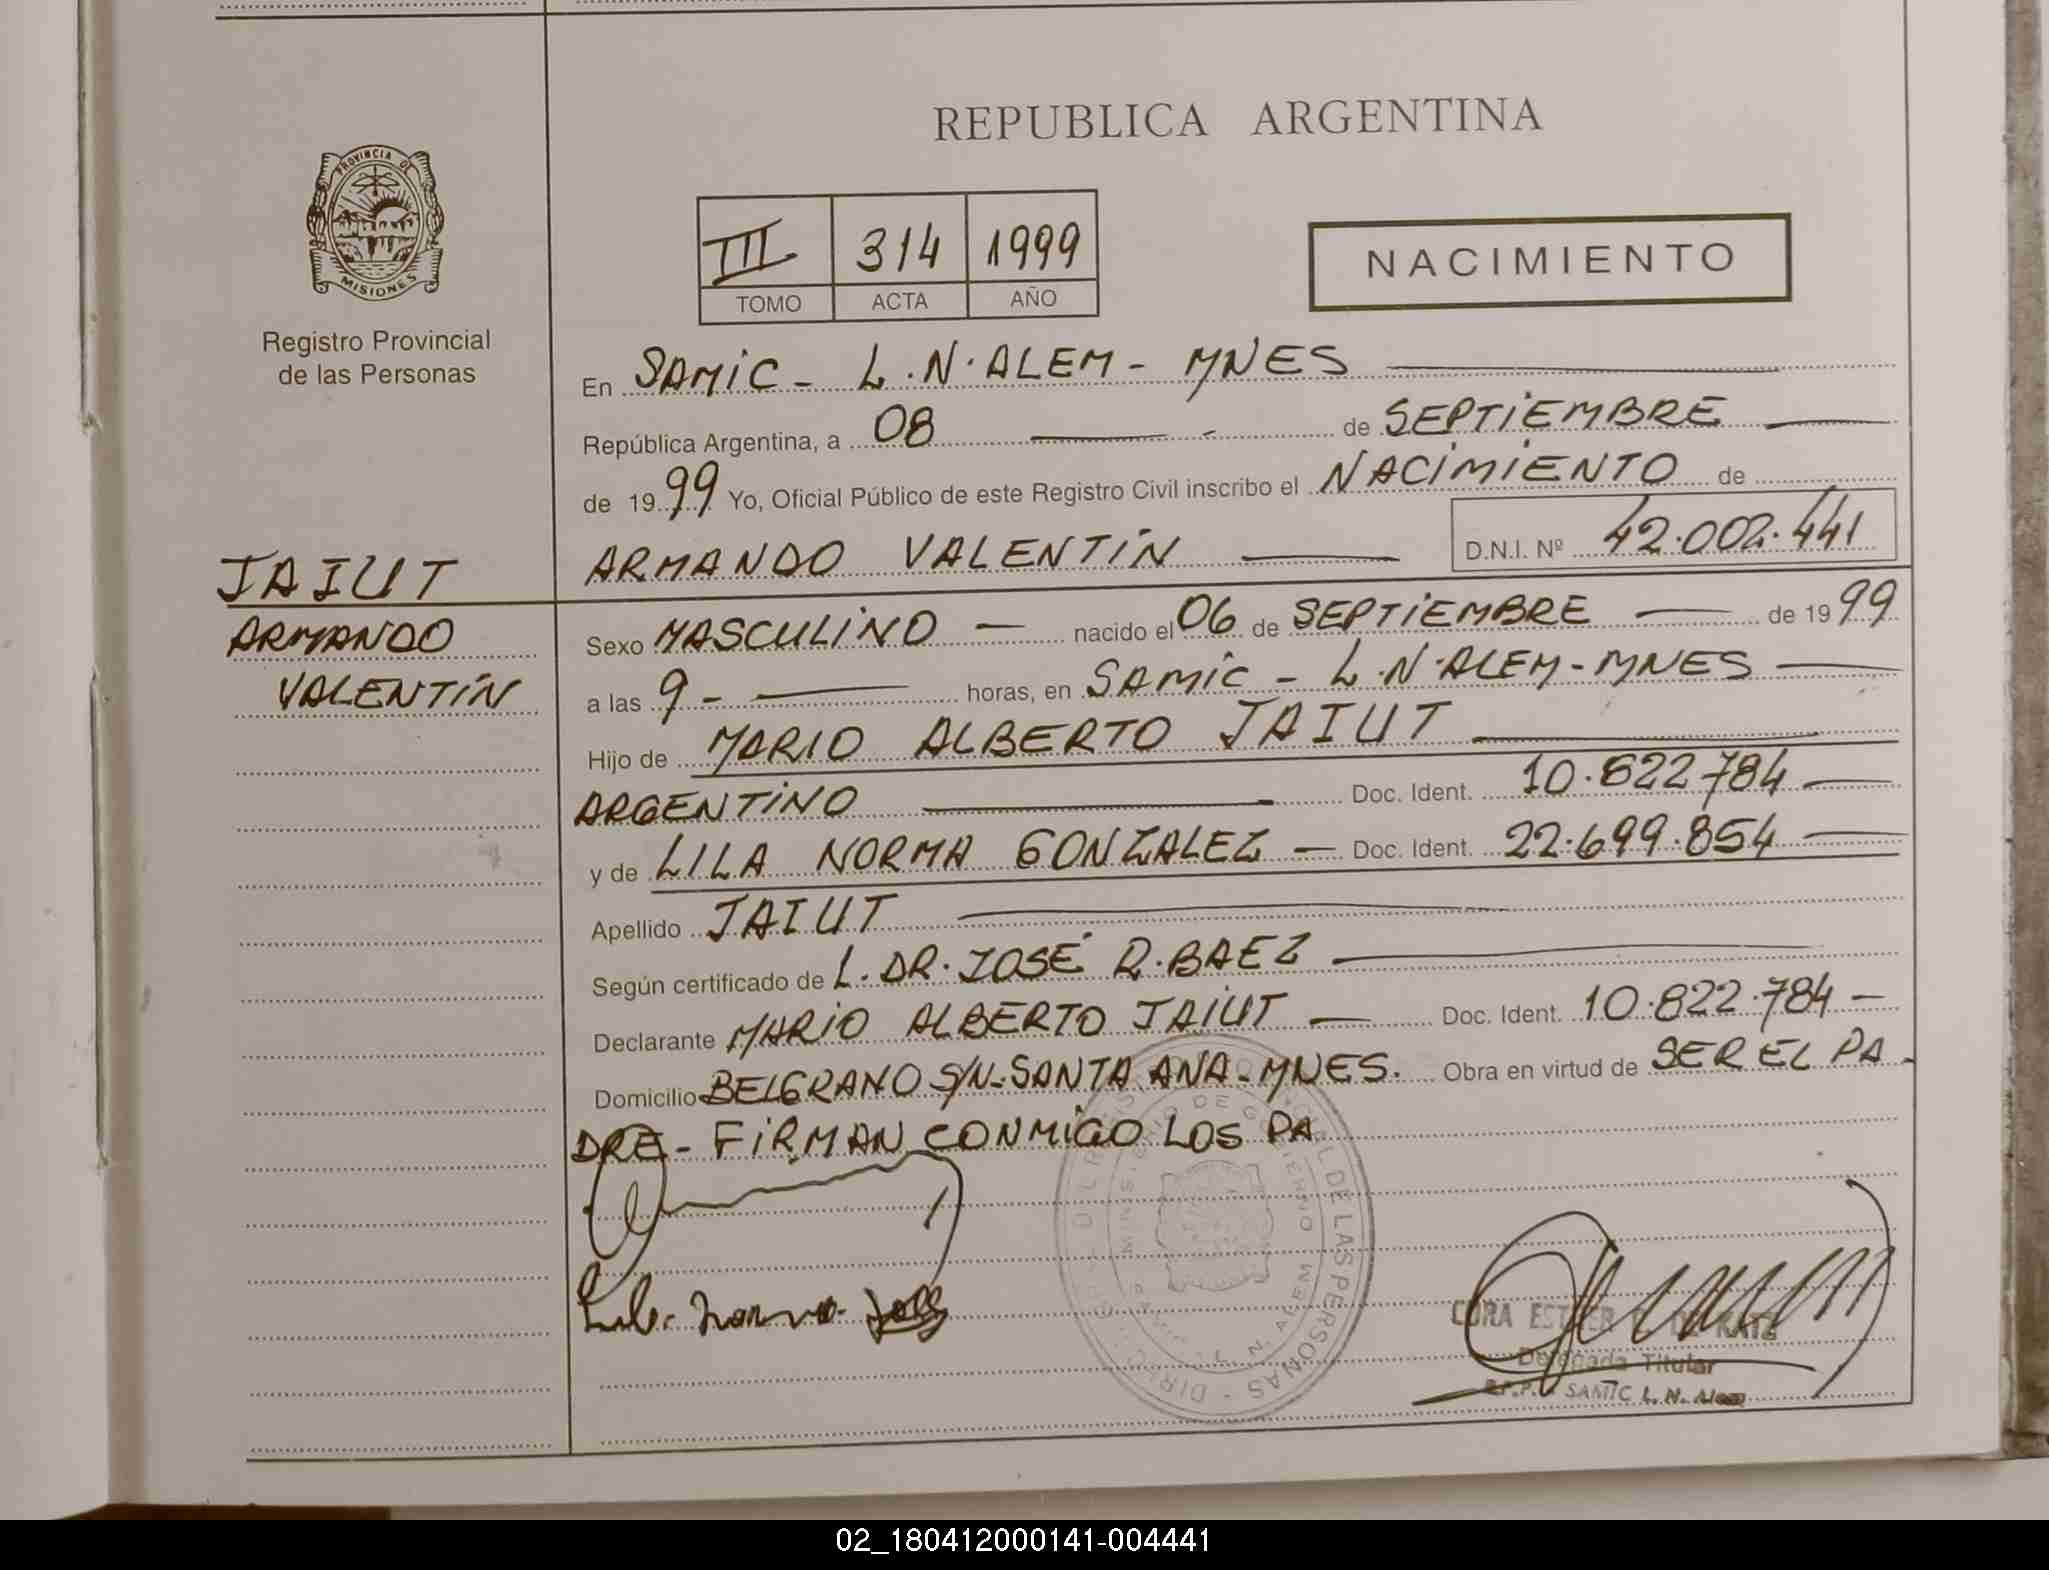 REPUBLICA ARGENTINA
PROVINCIA DE
MISIONES
Registro Provincial
de las Personas
III 314 1999
TOMO ACTA AÑO
NACIMIENTO
En SAMIC - L.N.ALEM - MNES
República Argentina, a 08 de SEPTIEMBRE
de 1999 Yo, Oficial Público de este Registro Civil inscribo el NACIMIENTO de
ARMANDO VALENTÍN D.N.I. Nº 42.002.441
JAIUT
ARMANDO
VALENTÍN
Sexo MASCULINO - nacido el 06 de SEPTIEMBRE de 1999
a las 9 - horas, en SAMIC - L.N.ALEM - MNES
Hijo de MARIO ALBERTO JAIUT
ARGENTINO Doc. Ident. 10.822.784
y de LILA NORMA GONZALEZ - Doc. Ident. 22.699.854
Apellido JAIUT
Según certificado de L. DR. JOSÉ R. BAEZ
Declarante MARIO ALBERTO JAIUT - Doc. Ident. 10.822.784 -
Domicilio BELGRANO S/N - SANTA ANA - MNES. Obra en virtud de SER EL PA
DRE - FIRMAN CONMIGO LOS PA
CORA ESTHER DE KATZ
Delegada Titular
SAMIC L. N. Alem
02_180412000141-004441